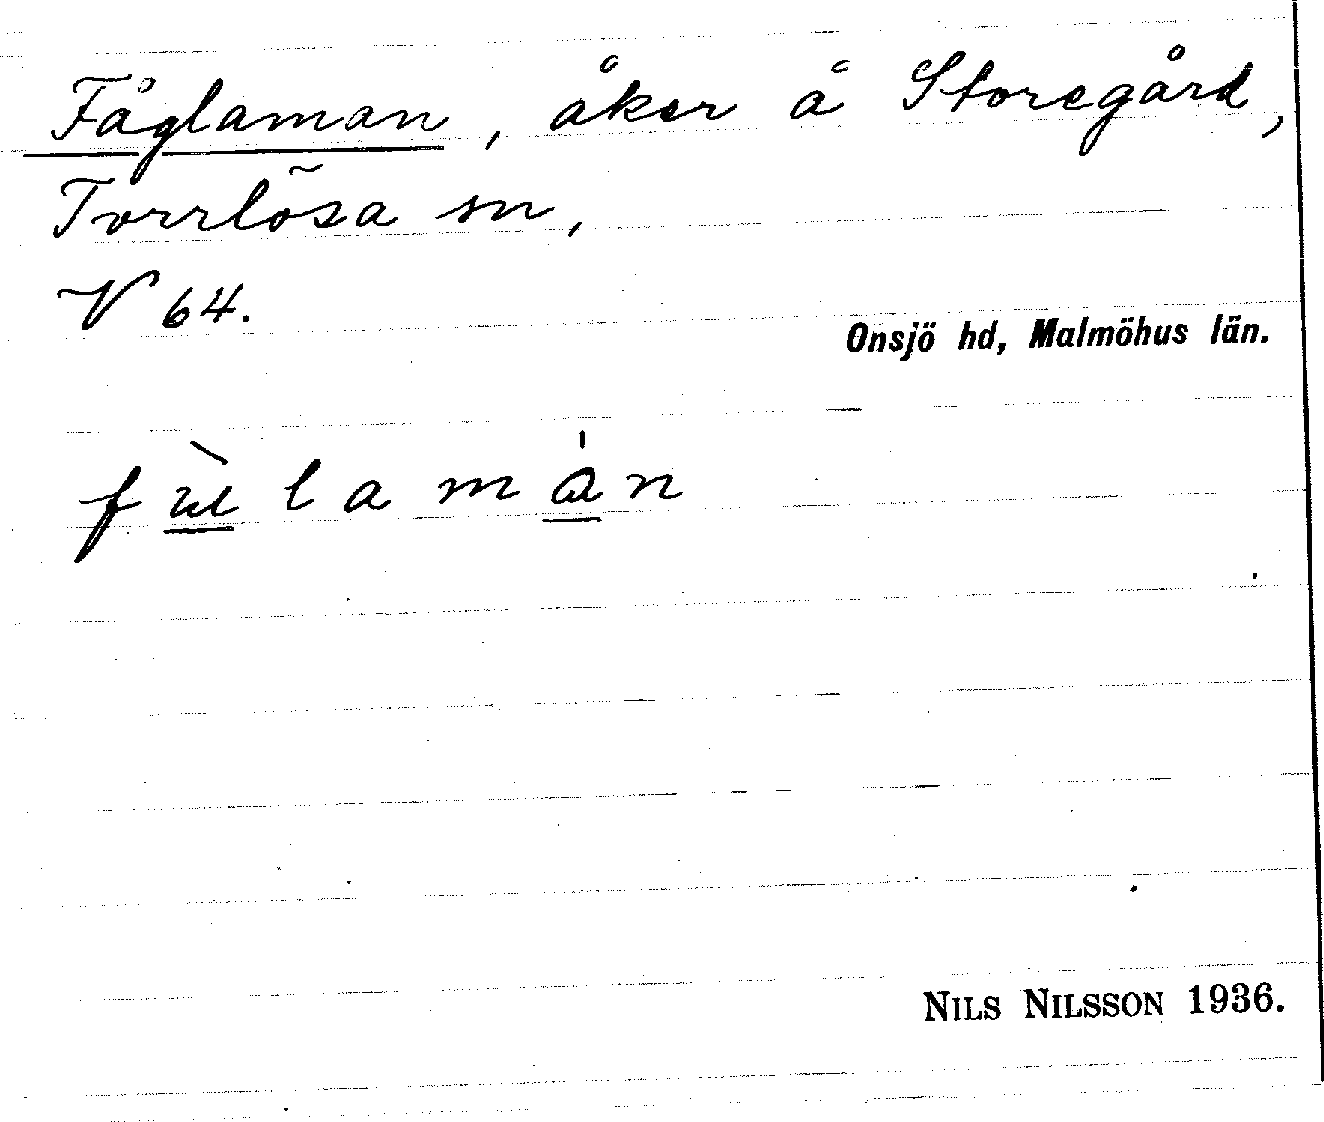 Fåglaman, åker å Storegård,
Torrlösa sn,
V 64.
Onsjö hd, Malmöhus län.
fùlamán
NILS NILSSON 1936.